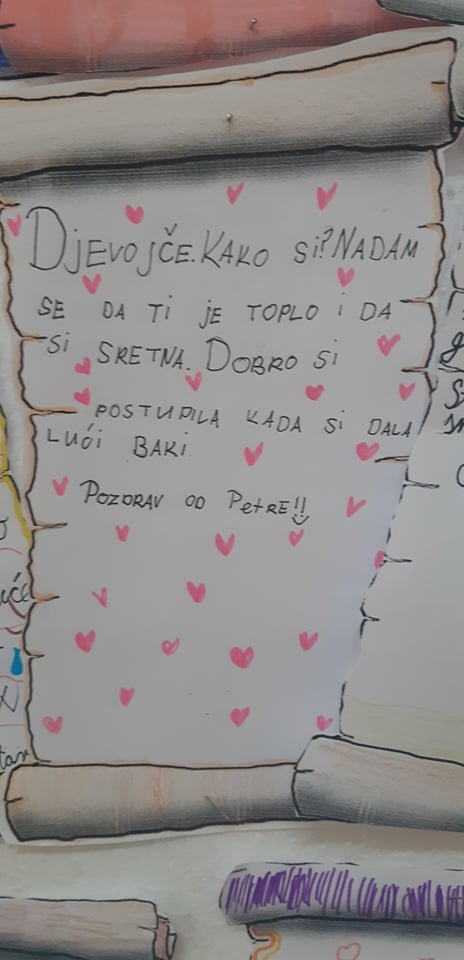 DJEVOJČE. KAKO SI? NADAM
SE DA TI JE TOPLO I DA
SI SRETNA. DOBRO SI
POSTUPILA KADA SI DALA
LUČI BAKI
POZDRAV OD PETRE!!